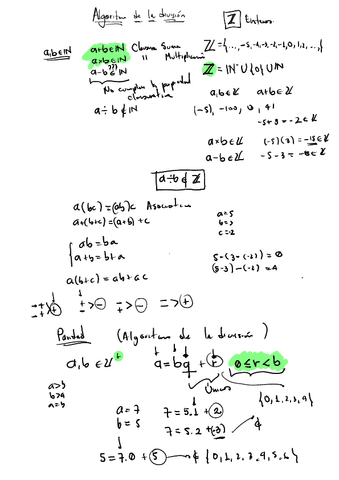 Algoritmo de la división
ℤ Enteros
a,b∈ℕ a+b∈ℕ Clausura Suma
a×b∈ℕ " Multiplicación
a-b∉ℕ
No cumplen la propiedad clausurativa
a÷b∉ℕ
ℤ={...,-5,-4,-3,-2,-1,0,1,2,...}
ℤ=ℕ⁻∪{0}∪ℕ
a,b∈ℤ a+b∈ℤ
(-5), -100, 0, 41
-5+3=-2∈ℤ
a×b∈ℤ (-5)(3)=-15∈ℤ
a-b∈ℤ -5-3=-8∈ℤ
a÷b∉ℤ
a(bc)=(ab)c Asociativa
a+(b+c)=(a+b)+c
ab=ba
a+b=b+a
a(b+c)=ab+ac
a=5
b=3
c=-2
5-(3-(-2))=0
(5-3)-(-2)=4
Paridad (Algoritmo de la división)
a,b∈ℤ⁺ a=bq+r 0≤r<b
a>b
b>a
a=b
Únicos
{0,1,2,3,4}
a=7
b=5
7=5.1+2
7=5.2+(-3) ∉
5=7.0+5 ∉{0,1,2,3,4,5,6}